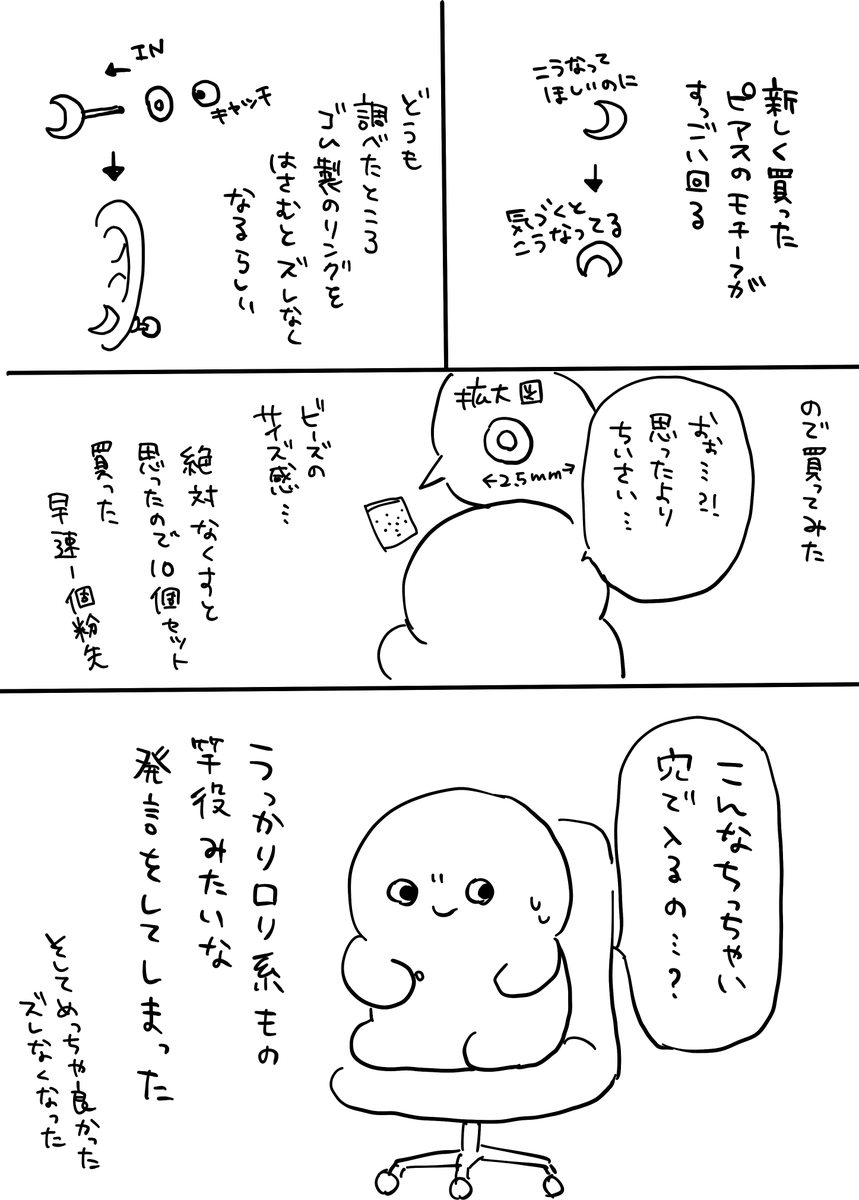 新しく買った
ピアスのモチーフが
すっごい回る
こうなって
ほしいのに
気づくと
こうなってる
どうも
調べたところ
ゴム製のリングを
はさむとズレなく
なるらしい
IN
キャッチ
ので買ってみた
おぉ…?!
思ったより
ちいさい…
拡大図
2.5mm
ビーズの
サイズ感…
絶対なくすと
思ったので10個セット
買った
早速1個粉失
こんなちっちゃい
穴で入るの…?
うっかりロリ系もの
竿役みたいな
発言をしてしまった
そしてめっちゃ良かった
ズレなくなった